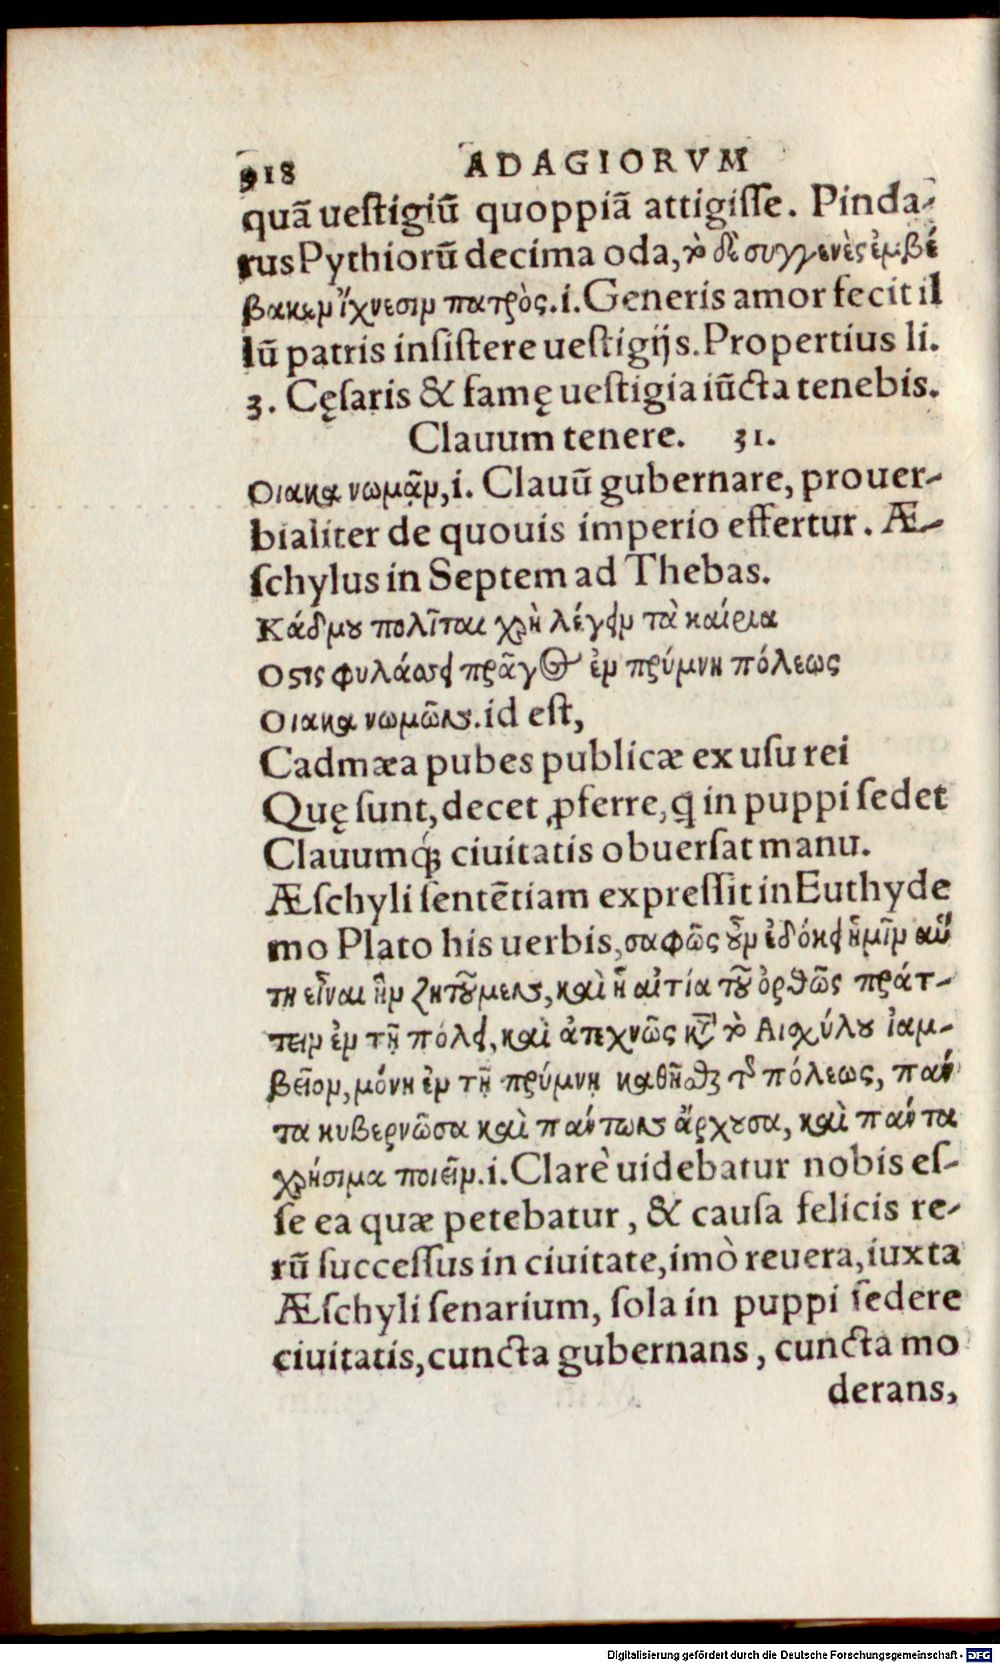 918 ADAGIORVM
quã ueſtigiũ quoppiã attigiſſe. Pinda-
rus Pythiorũ decima oda, τὸ δὲ συγγενὲς ἐμβέ
βακεν ἴχνεσιν πατρὸς.i. Generis amor fecit il
lũ patris inſiſtere ueſtigijs. Propertius li.
3. Cęſaris & famę ueſtigia iũcta tenebis.
Clauum tenere. 31.
Οιακα νωμᾶν, i. Clauũ gubernare, prouer-
bialiter de quouis imperio effertur. Æ-
ſchylus in Septem ad Thebas.
Κάδμου πολῖται χρὴ λέγειν τὰ καίρια
Οστις φυλάσσει πρᾶγος ἐν πρύμνη πόλεως
Οιακα νωμῶν. id eſt,
Cadmæa pubes publicæ ex uſu rei
Quę ſunt, decet ꝓferre, q̃ in puppi ſedet
Clauumq́ꝫ ciuitatis obuerſat manu.
Æſchyli ſentẽtiam expreſſit in Euthyde
mo Plato his uerbis, σαφῶς οὖν ἐδόκει ἡμῖν αὕ
τη εἶναι ἣν ζητοῦμεν, καὶ ἡ αἰτία τοῦ ὀρθῶς πράτ-
τειν ἐν τῇ πόλει, καὶ ἀτεχνῶς κατὰ τὸ Αισχύλου ἰαμ-
βεῖον, μόνη ἐν τῇ πρύμνῃ καθῆσθαι τῆς πόλεως, πάν
τα κυβερνῶσα καὶ πάντων ἄρχουσα, καὶ πάντα
χρήσιμα ποιεῖν.i. Clarè uidebatur nobis eſ-
ſe ea quæ petebatur, & cauſa felicis re-
rũ ſucceſſus in ciuitate, imò reuera, iuxta
Æſchyli ſenarium, ſola in puppi ſedere
ciuitatis, cuncta gubernans, cuncta mo
derans,
Digitalisierung gefördert durch die Deutsche Forschungsgemeinschaft - DFG